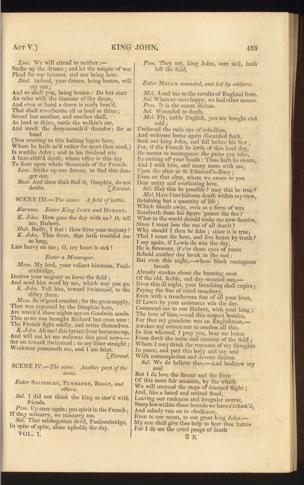 ACT V.] KING JOHN. 433
Lew. We will attend to neither:—
Strike up the drums; and let the tongue of war
Plead for our interest, and our being here.
Bast. Indeed, your drums, being beaten, will
cry out;
And so shall you, being beaten: Do but start
An echo with the clamour of thy drum,
And even at hand a drum is ready brac'd,
That shall reverberate all as loud as thine;
Sound but another, and another shall,
As loud as thine, rattle the welkin's ear,
And mock the deep-mouth'd thunder: for at
hand
(Not trusting to this halting legate here,
Whom he hath us'd rather for sport than need,)
Is warlike John; and in his forehead sits
A bare-ribb'd death, whose office is this day
To feast upon whole thousands of the French.
Lew. Strike up our drums, to find this dan-
ger out.
Bast. And thou shalt find it, Dauphin, do not
doubt. [Exeunt.
SCENE III.—The same. A field of battle.
Alarums. Enter KING JOHN and HUBERT.
K. John. How goes the day with us? O, tell
me, Hubert.
Hub. Badly, I fear: How fares your majesty?
K. John. This fever, that hath troubled me
so long,
Lies heavy on me; O, my heart is sick!
Enter a Messenger.
Mess. My lord, your valiant kinsman, Faul-
conbridge,
Desires your majesty to leave the field;
And send him word by me, which way you go.
K. John. Tell him, toward Swinstead, to the
abbey there.
Mess. Be of good comfort; for the great supply,
That was expected by the Dauphin here,
Are wreck'd three nights ago on Goodwin sands.
This news was brought Richard but even now:
The French fight coldly, and retire themselves.
K. John. Ah me! this tyrant fever burns me up,
And will not let me welcome this good news.—
Set on toward Swinstead: to my litter straight;
Weakness possesseth me, and I am faint.
[Exeunt.
SCENE IV.—The same. Another part of the
same.
Enter SALISBURY, PEMBROKE, BIGOT, and
others.
Sal. I did not think the king so stor'd with
friends.
Pem. Up once again; put spirit in the French;
If they miscarry, we miscarry too.
Sal. That misbegotten devil, Faulconbridge,
In spite of spite, alone upholds the day.
VOL. I.
Pem. They say, king John, sore sick, hath
left the field.
Enter MELUN wounded, and led by soldiers.
Mel. Lead me to the revolts of England here.
Sal. When we were happy, we had other names.
Pem. It is the count Melun.
Sal. Wounded to death.
Mel. Fly, noble English, you are bought and
sold;
Unthread the rude eye of rebellion,
And welcome home again discarded faith.
Seek out king John, and fall before his feet;
For, if the French be lords of this loud day,
He means to recompense the pains you take,
By cutting off your heads: Thus hath he sworn,
And I with him, and many more with me,
Upon the altar at St Edmund's-Bury;
Even on that altar, where we swore to you
Dear amity and everlasting love.
Sal. May this be possible? may this be true?
Mel. Have I not hideous death within my view,
Retaining but a quantity of life;
Which bleeds away, even as a form of wax
Resolveth from his figure 'gainst the fire?
What in the world should make me now deceive,
Since I must lose the use of all deceit?
Why should I then be false; since it is true,
That I must die here, and live hence by truth?
I say again, if Lewis do win the day,
He is forsworn, if e'er those eyes of yours
Behold another day break in the east:
But even this night,—whose black contagious
breath
Already smokes about the burning crest
Of the old, feeble, and day-wearied sun,—
Even this ill night, your breathing shall expire;
Paying the fine of rated treachery,
Even with a treacherous fine of all your lives,
If Lewis by your assistance win the day.
Commend me to one Hubert, with your king;
The love of him,—and this respect besides,
For that my grandsire was an Englishman,—
Awakes my conscience to confess all this.
In lieu whereof, I pray you, bear me hence
From forth the noise and rumour of the field;
Where I may think the remnant of my thoughts
In peace, and part this body and my soul
With contemplation and devout desires.
Sal. We do believe thee,—And beshrew my
soul
But I do love the favour and the form
Of this most fair occasion, by the which
We will untread the steps of damned flight;
And, like a bated and retired flood,
Leaving our rankness and irregular course,
Stoop low within those bounds we have o'erlook'd,
And calmly run on in obedience,
Even to our ocean, to our great king John.—
My arm shall give thee help to bear thee hence
For I do see the cruel pangs of death
2 E